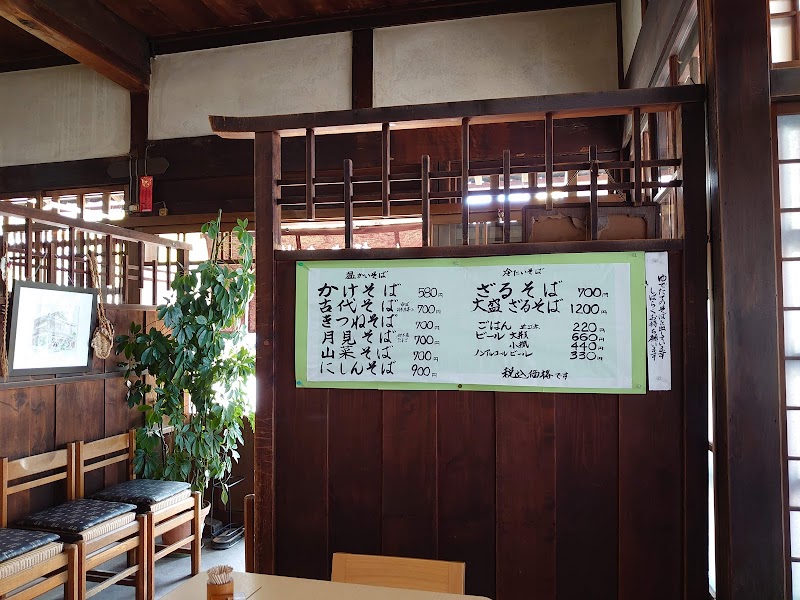 温かいそば
かけそば 580円
古代そば 700円
きつねそば 700円
月見そば 700円
山菜そば 700円
にしんそば 900円
冷たいそば
ざるそば 700円
大盛ざるそば 1200円
ごはん 220円
ビール 大瓶 660円
小瓶 440円
ノンアルコールビール 330円
税込価格です
ゆでたてのそばを出しています
しばらくお待ち願います